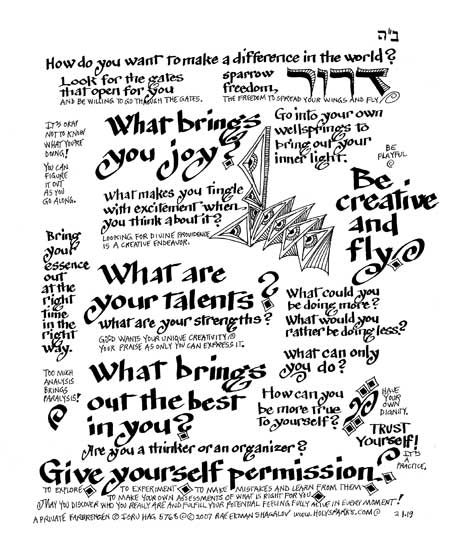 ב״ה
How do you want to make a difference in the world?
Look for the gates
that open for you
AND BE WILLING TO GO THROUGH THE GATES.
sparrow
freedom,
דרור
THE FREEDOM TO SPREAD YOUR WINGS AND FLY!
IT'S OKAY
NOT TO KNOW
WHAT YOU'RE
DOING!
YOU CAN
FIGURE
IT OUT
AS YOU
GO ALONG.
What brings
you joy?
Go into your own
wellsprings to
bring out your
inner light.
BE
PLAYFUL
What makes you tingle
with excitement when
you think about it?
LOOKING FOR DIVINE PROVIDENCE
IS A CREATIVE ENDEAVOR.
Be
creative
and
fly.
Bring
your
essence
out
at the
right
time
in the
right
way.
What are
your talents?
What are your strengths?
GOD WANTS YOUR UNIQUE CREATIVITY
YOUR PRAISE AS ONLY YOU CAN EXPRESS IT.
What could you
be doing more?
What would you
rather be doing less?
What can only
you do?
TOO MUCH
ANALYSIS
BRINGS
PARALYSIS!
What brings
out the best
in you?
How can you
be more true
To yourself?
HAVE
YOUR
OWN
DIGNITY.
TRUST
Yourself!
IT'S
A
PRACTICE.
Are you a thinker or an organizer?
Give yourself permission
TO EXPLORE TO EXPERIMENT TO MAKE MISTAKES AND LEARN FROM THEM
TO MAKE YOUR OWN ASSESSMENTS OF WHAT IS RIGHT FOR YOU
MAY YOU DISCOVER WHO YOU REALLY ARE AND FULFILL YOUR POTENTIAL FEELING FULLY ALIVE IN EVERY MOMENT!
A PRIVATE FARBRENGEN © ISRU HAG 5768 © 2007 RAE EKMAN SHAGALOV www.HOLYSPARKS.COM 2.1.19